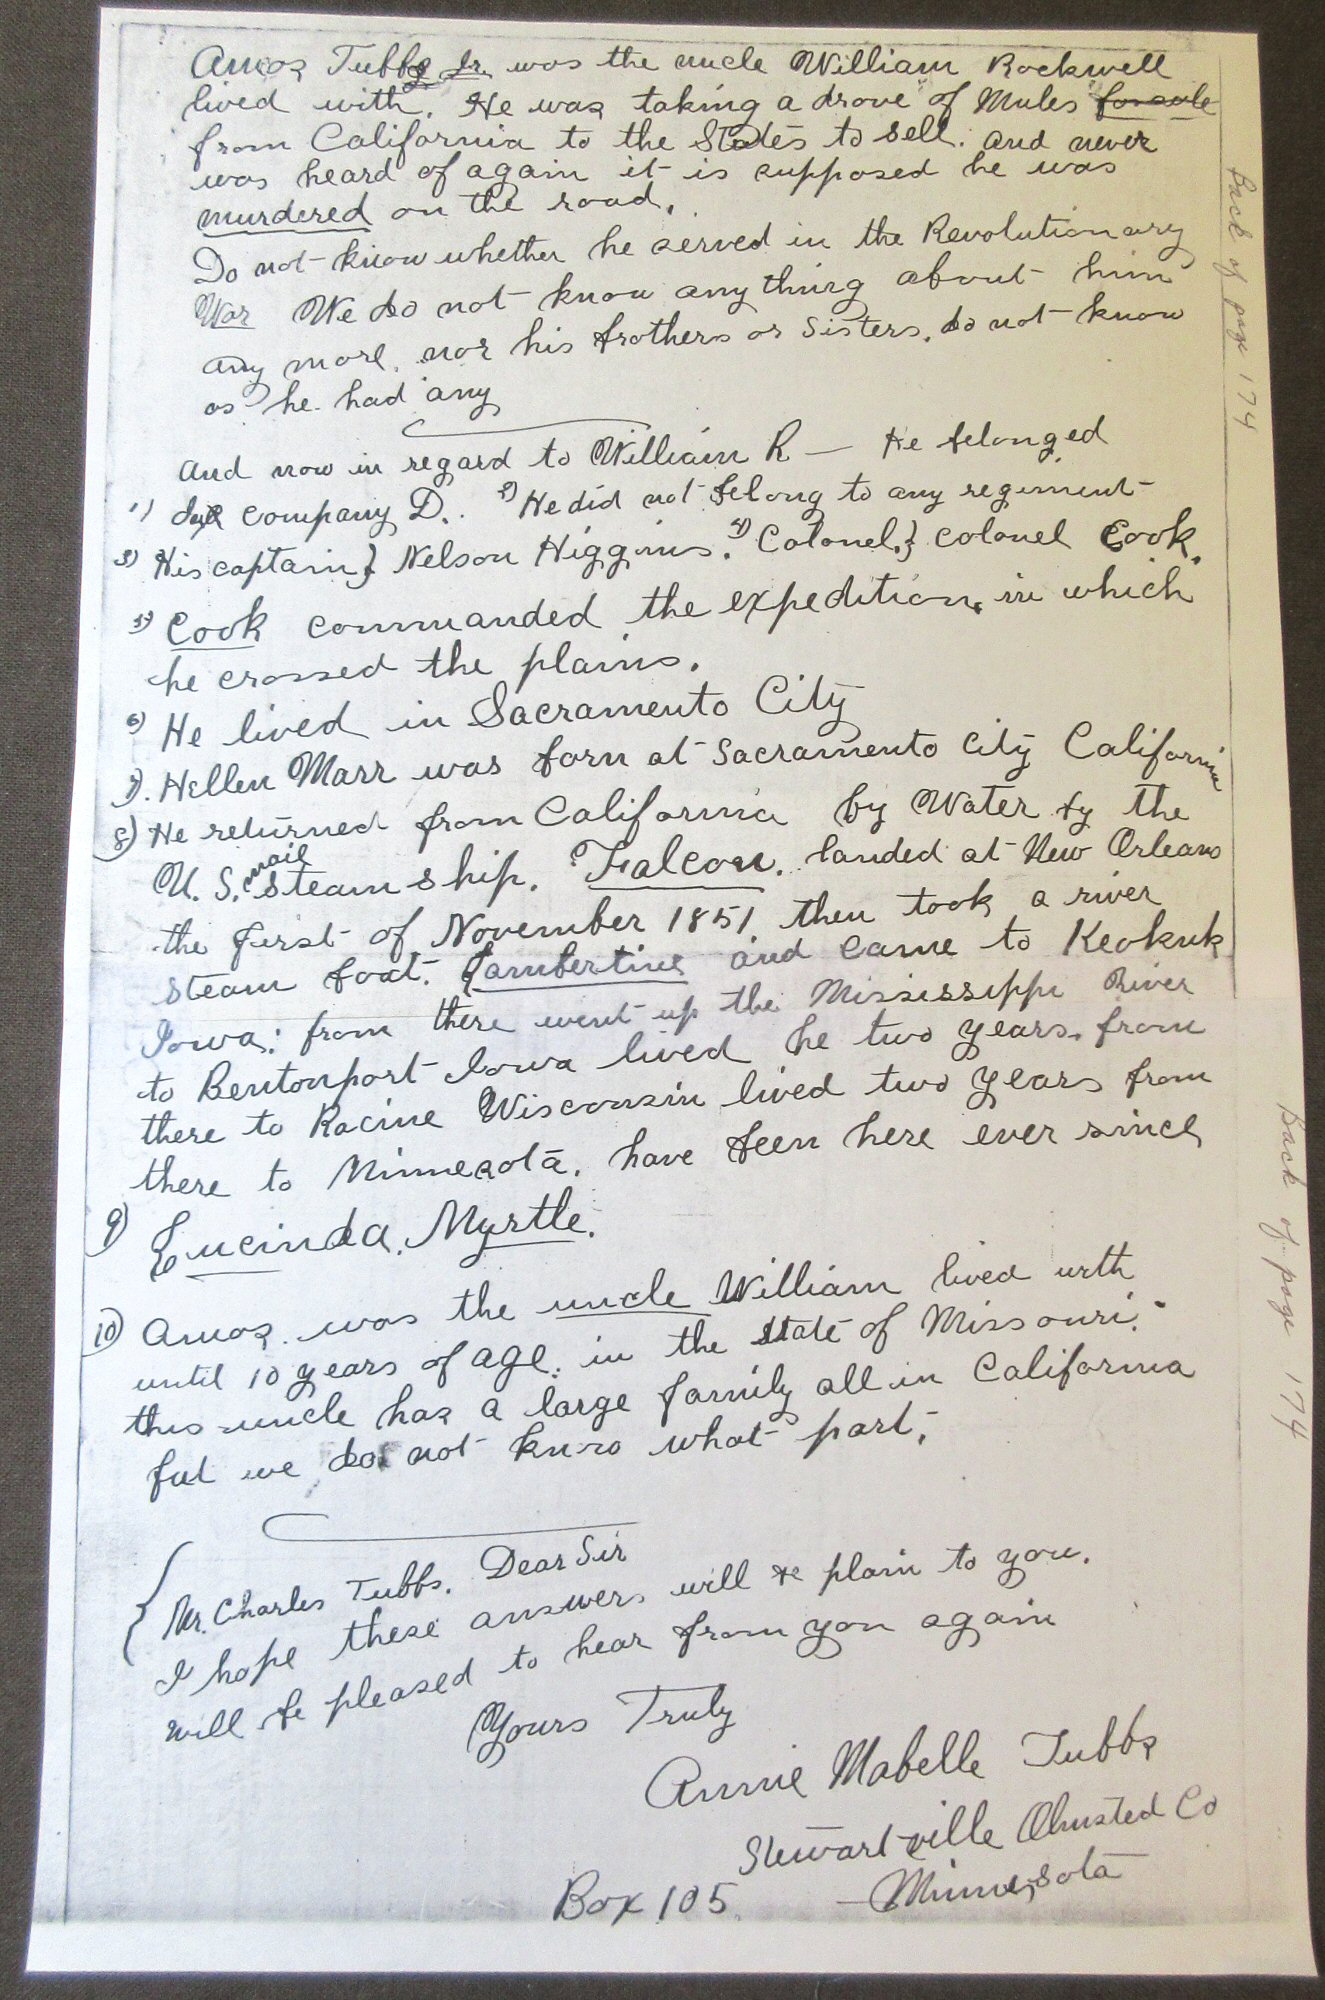 Amos Tubbs Jr. was the uncle William Rockwell
lived with. He was taking a drove of Mules for sale
from California to the States to sell. and never
was heard of again it is supposed he was
murdered on the road.
Do not know whether he served in the Revolutionary
War We do not know any thing about him
any more. nor his brothers or sisters. do not know
as he had any
and now in regard to William R — He belonged
1) company D. 2) He did not belong to any regiment
3) His captain} Nelson Higgins. 4) Colonel.} colonel Cook.
5) Cook commanded the expedition, in which
he crossed the plains.
6) He lived in Sacramento City
7). Hellen Marr was born at Sacramento City California
8) He returned from California by Water by the
U. S. mail steam ship. Falcon. landed at New Orleans
the first of November 1851 then took a river
steam boat. Lambertine and came to Keokuk
Iowa: from there went up the Mississippi River
to Bentonport Iowa lived he two years. from
there to Racine Wisconsin lived two years from
there to Minnesota. have been here ever since
9) Lucinda. Myrtle.
10) Amos. was the uncle William lived with
until 10 years of age. in the state of Missouri.
this uncle has a large family all in California
but we do not know what part.
Mr. Charles Tubbs. Dear Sir
I hope these answers will be plain to you.
will be pleased to hear from you again
Yours Truly
Annie Mabelle Tubbs
Stewartville Olmsted Co
Box 105. Minnesota
Back of page 174
Back of page 174